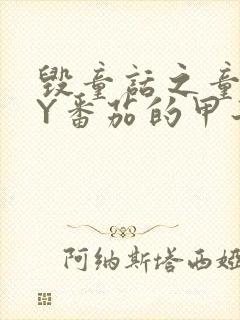 毁童话之童
Y番茄的甲
阿纳斯塔西娅